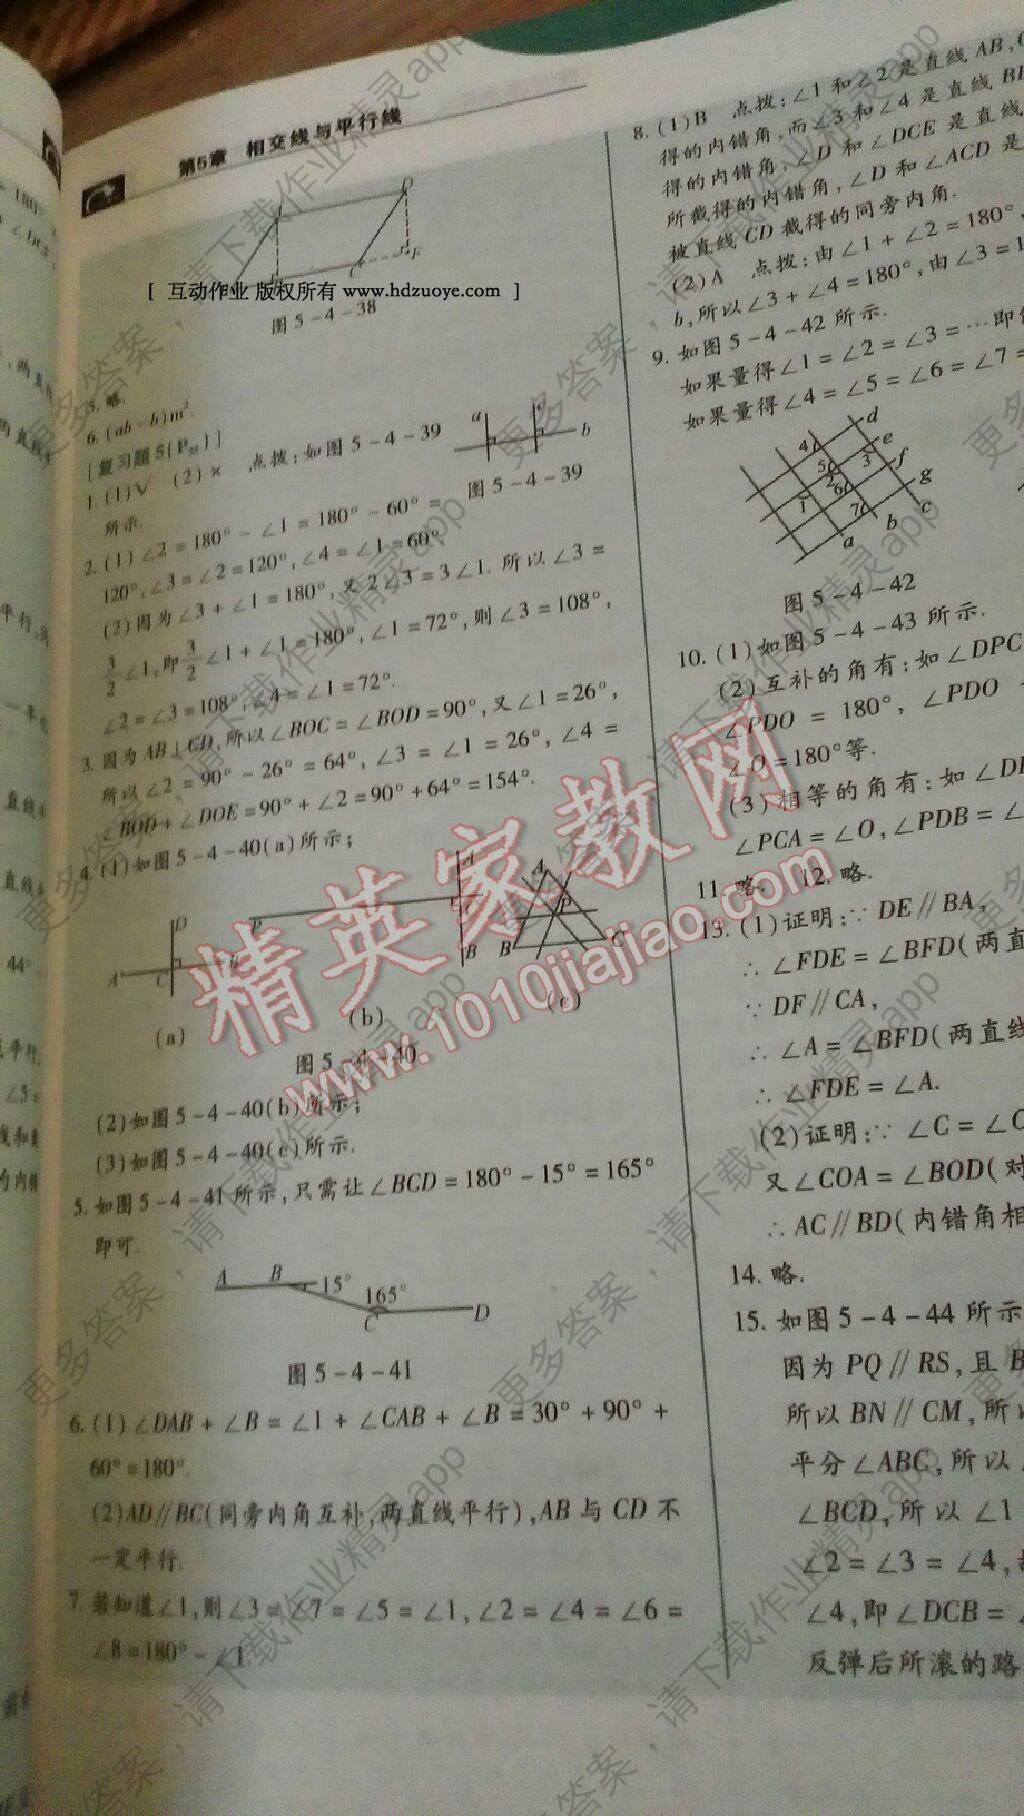 第5章 相交线与平行线
D
C
F
[ 互动作业 版权所有 www.hdzuoye.com ]
图5-4-38
5. 略.
6. (ab-b)m².
[复习题5]
1. (1)√ (2)× 点拨:如图5-4-39
所示.
a
c
b
图5-4-39
2. (1)∠2=180°-∠1=180°-60°=
120°,∠3=∠2=120°,∠4=∠1=60°
(2)因为∠3+∠1=180°,又2∠3=3∠1.所以∠3=
3/2∠1,即3/2∠1+∠1=180°,∠1=72°,则∠3=108°,
∠2=∠3=108°,∠4=∠1=72°.
3. 因为AB⊥CD,所以∠BOC=∠BOD=90°,又∠1=26°,
所以∠2=90°-26°=64°,∠3=∠1=26°,∠4=
∠BOD+∠DOE=90°+∠2=90°+64°=154°.
4. (1)如图5-4-40(a)所示;
A
C
D
B
P
A
C
B
A
P
B
C
(a)
(b)
(c)
图5-4-40
(2)如图5-4-40(b)所示;
(3)如图5-4-40(c)所示.
5. 如图5-4-41所示,只需让∠BCD=180°-15°=165°
即可.
A
B
15°
165°
C
D
图5-4-41
6. (1)∠DAB+∠B=∠1+∠CAB+∠B=30°+90°+
60°=180°.
(2)AD∥BC(同旁内角互补,两直线平行),AB与CD不
一定平行.
7. 若知道∠1,则∠3=∠7=∠5=∠1,∠2=∠4=∠6=
∠8=180°-∠1
8. (1)B 点拨:∠1和∠2是直线AB,
得的内错角,而∠3和∠4是直线
得的内错角,∠D和∠DCE是直线
所截得的内错角,∠D和∠ACD是
被直线CD截得的同旁内角.
(2)A 点拨:由∠1+∠2=180°,
b,所以∠3+∠4=180°,由∠3=
9. 如图5-4-42所示.
如果量得∠1=∠2=∠3=…即
如果量得∠4=∠5=∠6=∠7=
d
e
f
g
c
b
a
4
5
3
2
6
1
7
图5-4-42
10. (1)如图5-4-43所示.
(2)互补的角有:如∠DPC
∠PDO=180°,∠PDO
∠O=180°等.
(3)相等的角有:如
∠PCA=∠O,∠PDB=∠
11. 略. 12. 略.
13. (1)证明:∵DE∥BA,
∴∠FDE=∠BFD(两直
∵DF∥CA,
∴∠A=∠BFD(两直线
∴∠FDE=∠A.
(2)证明:∵∠C=∠
又∠COA=∠BOD(对
∴AC∥BD(内错角相
14. 略.
15. 如图5-4-44所示
因为PQ∥RS,且
所以BN∥CM,所
平分∠ABC,所以
∠BCD,所以∠1
∠2=∠3=∠4,
∠4,即∠DCB=
反弹后所滚的路
精英家教网
www.1010jiajiao.com
更多答案,请下载作业精灵app